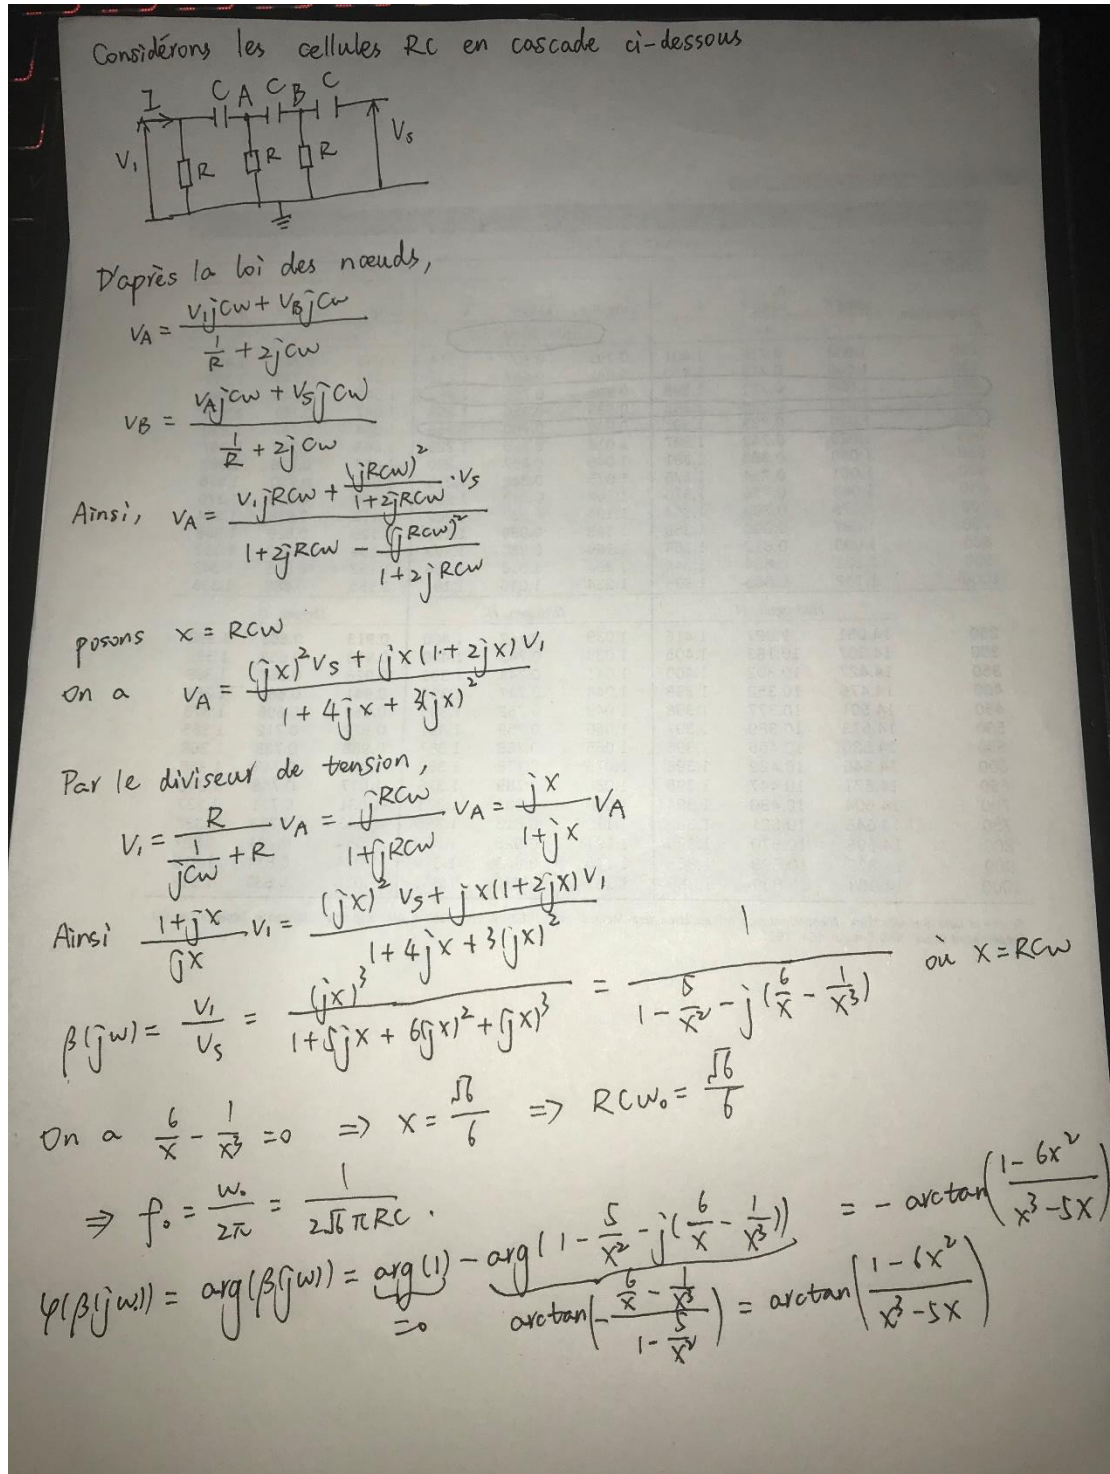 Considérons les cellules RC en cascade ci-dessous
I C A C B C
V₁ R R R Vs
D'après la loi des nœuds,
V_A = (V₁jCω + V_BjCω) / (1/R + 2jCω)
V_B = (V_AjCω + V_SjCω) / (1/R + 2jCω)
Ainsi, V_A = (V₁jRCω + (jRCω)²/(1+2jRCω) · Vs) / (1+2jRCω − (jRCω)²/(1+2jRCω))
posons x = RCω
On a V_A = ((jx)²Vs + jx(1+2jx)V₁) / (1 + 4jx + 3(jx)²)
Par le diviseur de tension,
V₁ = R/(1/(jCω) + R) V_A = jRCω/(1+jRCω) V_A = jx/(1+jx) V_A
Ainsi (1+jx)/(jx) · V₁ = ((jx)² Vs + jx(1+2jx)V₁) / (1+4jx+3(jx)²)
β(jω) = V₁/Vs = (jx)³ / (1+5jx + 6(jx)² + (jx)³) = 1 / (1 − 5/x² − j(6/x − 1/x³)) où x = RCω
On a 6/x − 1/x³ = 0 ⇒ x = √6/6 ⇒ RCω₀ = √6/6
⇒ f₀ = ω₀/2π = 1/(2√6πRC).
φ(β(jω)) = arg(β(jω)) = arg(1) − arg(1 − 5/x² − j(6/x − 1/x³)) = − arctan((1−6x²)/(x³−5x))
=0 arctan(−(6/x − 1/x³)/(1 − 5/x²)) = arctan((1−6x²)/(x³−5x))